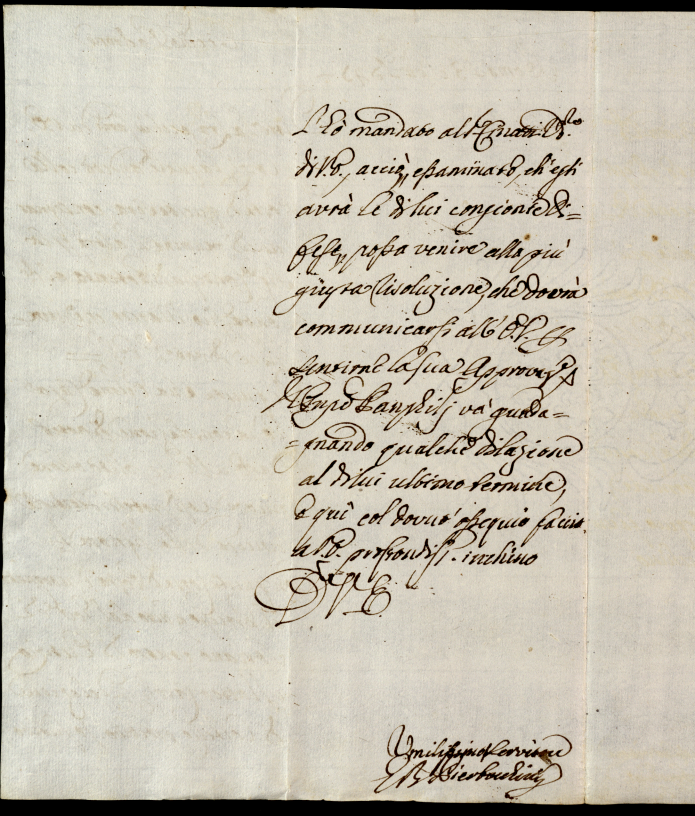 L'hò mandato all' Em.
di V. E., acciò, essaminato, ch' egli
avrà le di lui conzionte di=
fese, possa venire alla più
giusta risoluzione, che dovrà
communicarsi all' E. V. p
sentirne la sua Approvaz.e
Il Panfilij và guada=
=gnando qualche dilazione
al di lui ultimo termine,
e quì col dovut' ossequio faccio
a V. E. profondiss.o inchino
D. V. E.
Umilissimo Servitore